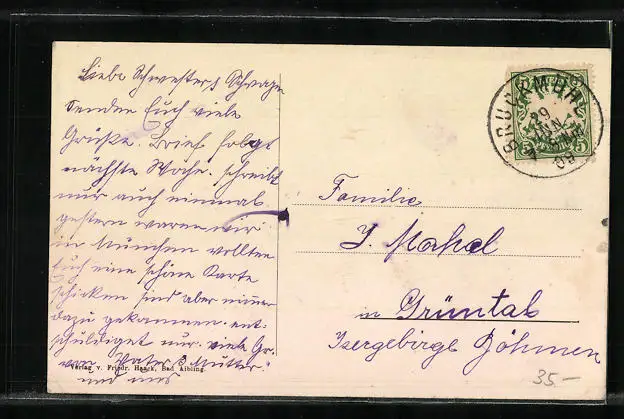 Liebe Schwester & Schwager
Senden Euch viele
Grüße. Brief folgt
nächste Woche. schreibt
nur auch einmal
gestern waren wir
in München wollten
Euch eine schöne Karte
schicken sind aber nimmer
dazu gekommen. ent-
schuldiget nur. viele Gr.
von Vater & Mutter
und uns
Verlag v. Friedr. Haack, Bad Aibling.
BRUCKMÜHL
29
JUN
09
5 5
Familie
J.
in Grüntal
Isergebirge Böhmen
35.-